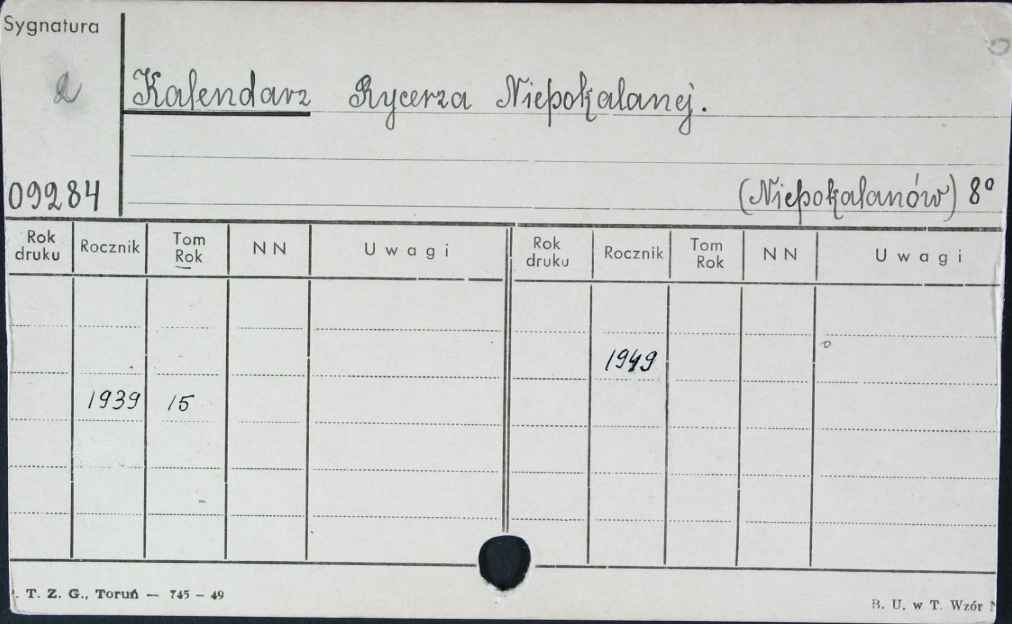 Sygnatura
Kalendarz Rycerza Niepokalanej.
09284
(Niepokalanów) 8º
Rok druku Rocznik Tom Rok NN Uwagi Rok druku Rocznik Tom Rok NN Uwagi
1949
1939 15
. T. Z. G., Toruń — 745 - 49
B. U. w T. Wzór